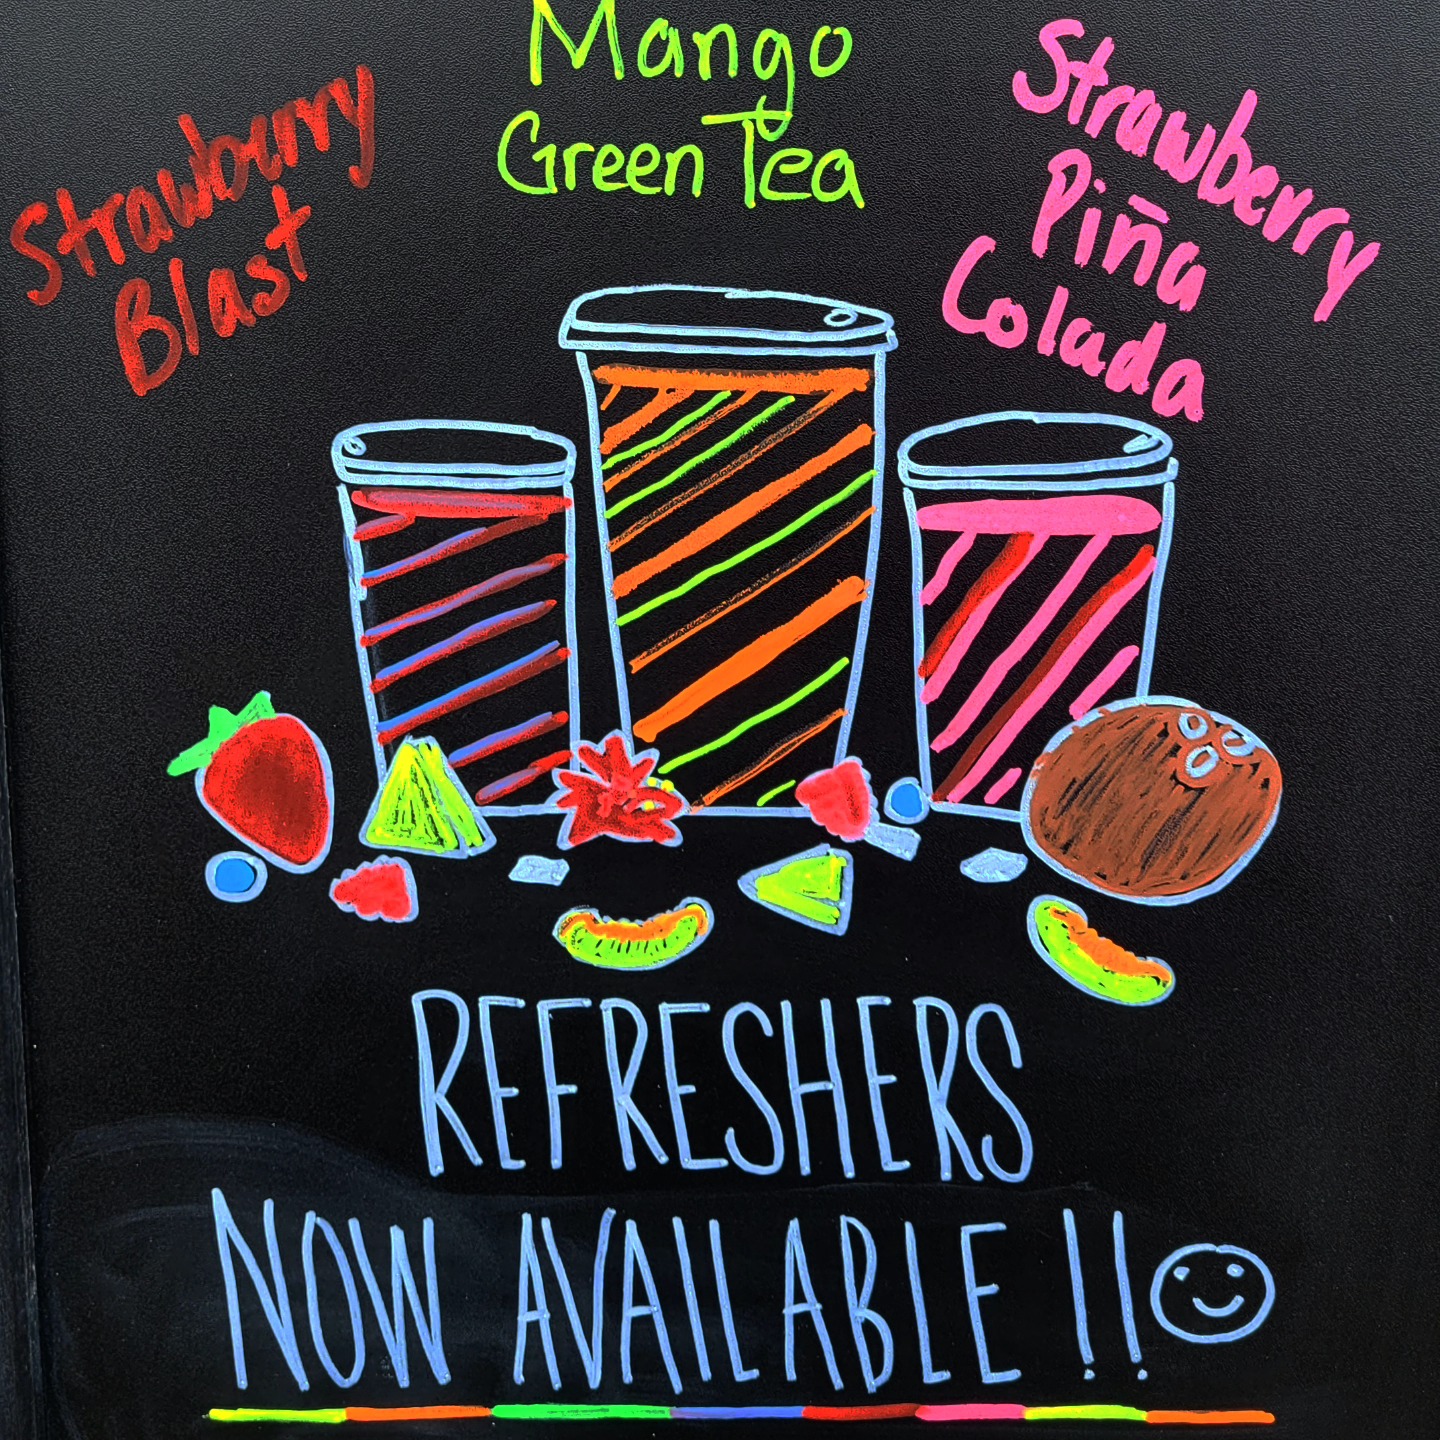 Strawberry
Blast
Mango
Green Tea
Strawberry
Piña
Colada
REFRESHERS
NOW AVAILABLE !!